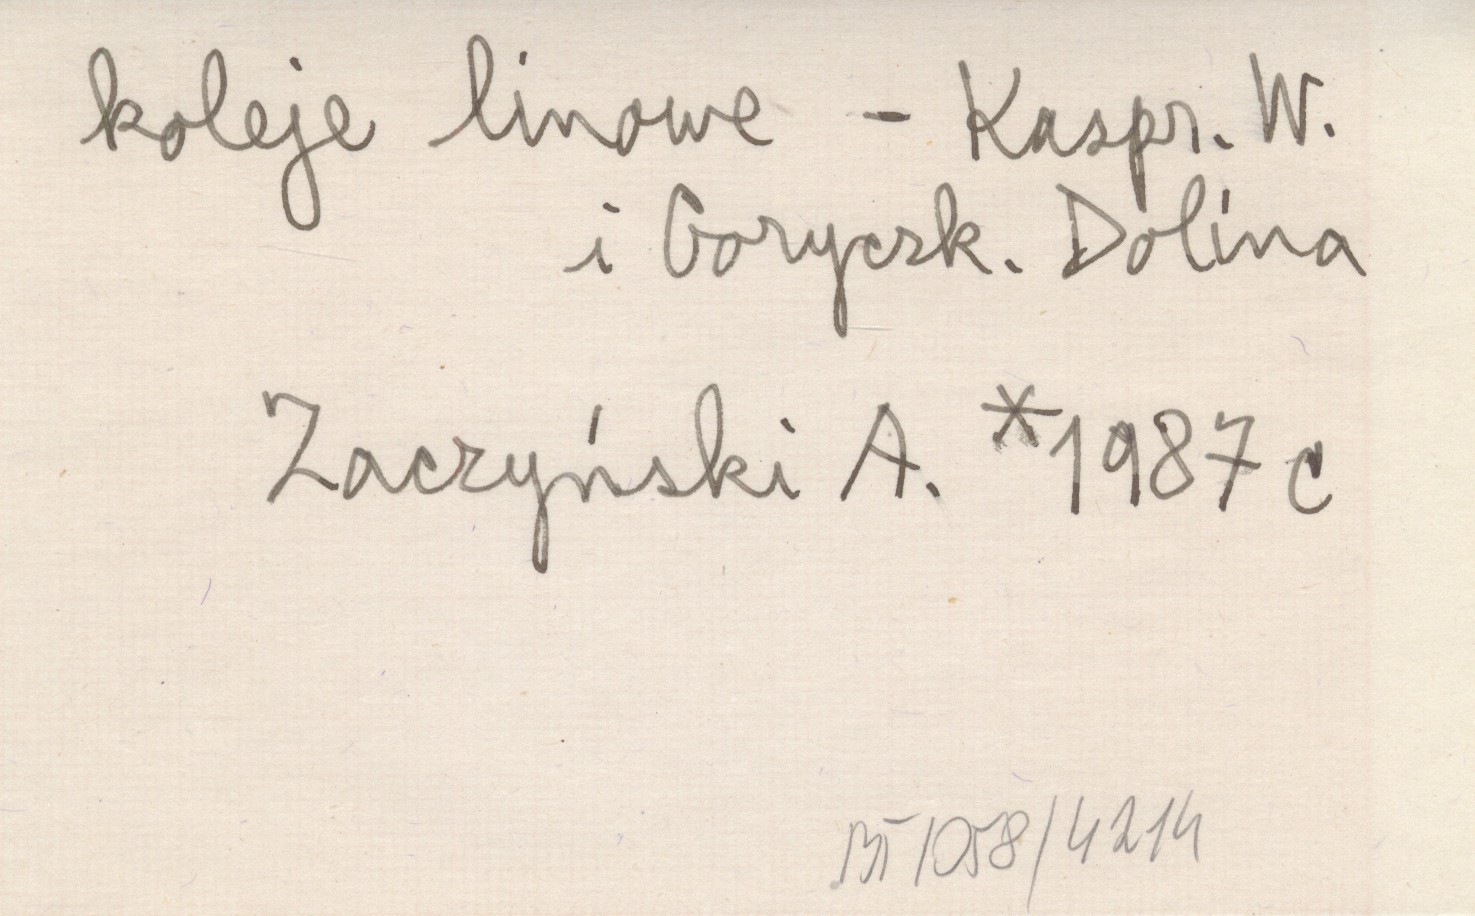 koleje linowe - Kaspr. W.
i Goryczk. Dolina
Zaczyński A. *1987c
BT/058/4214